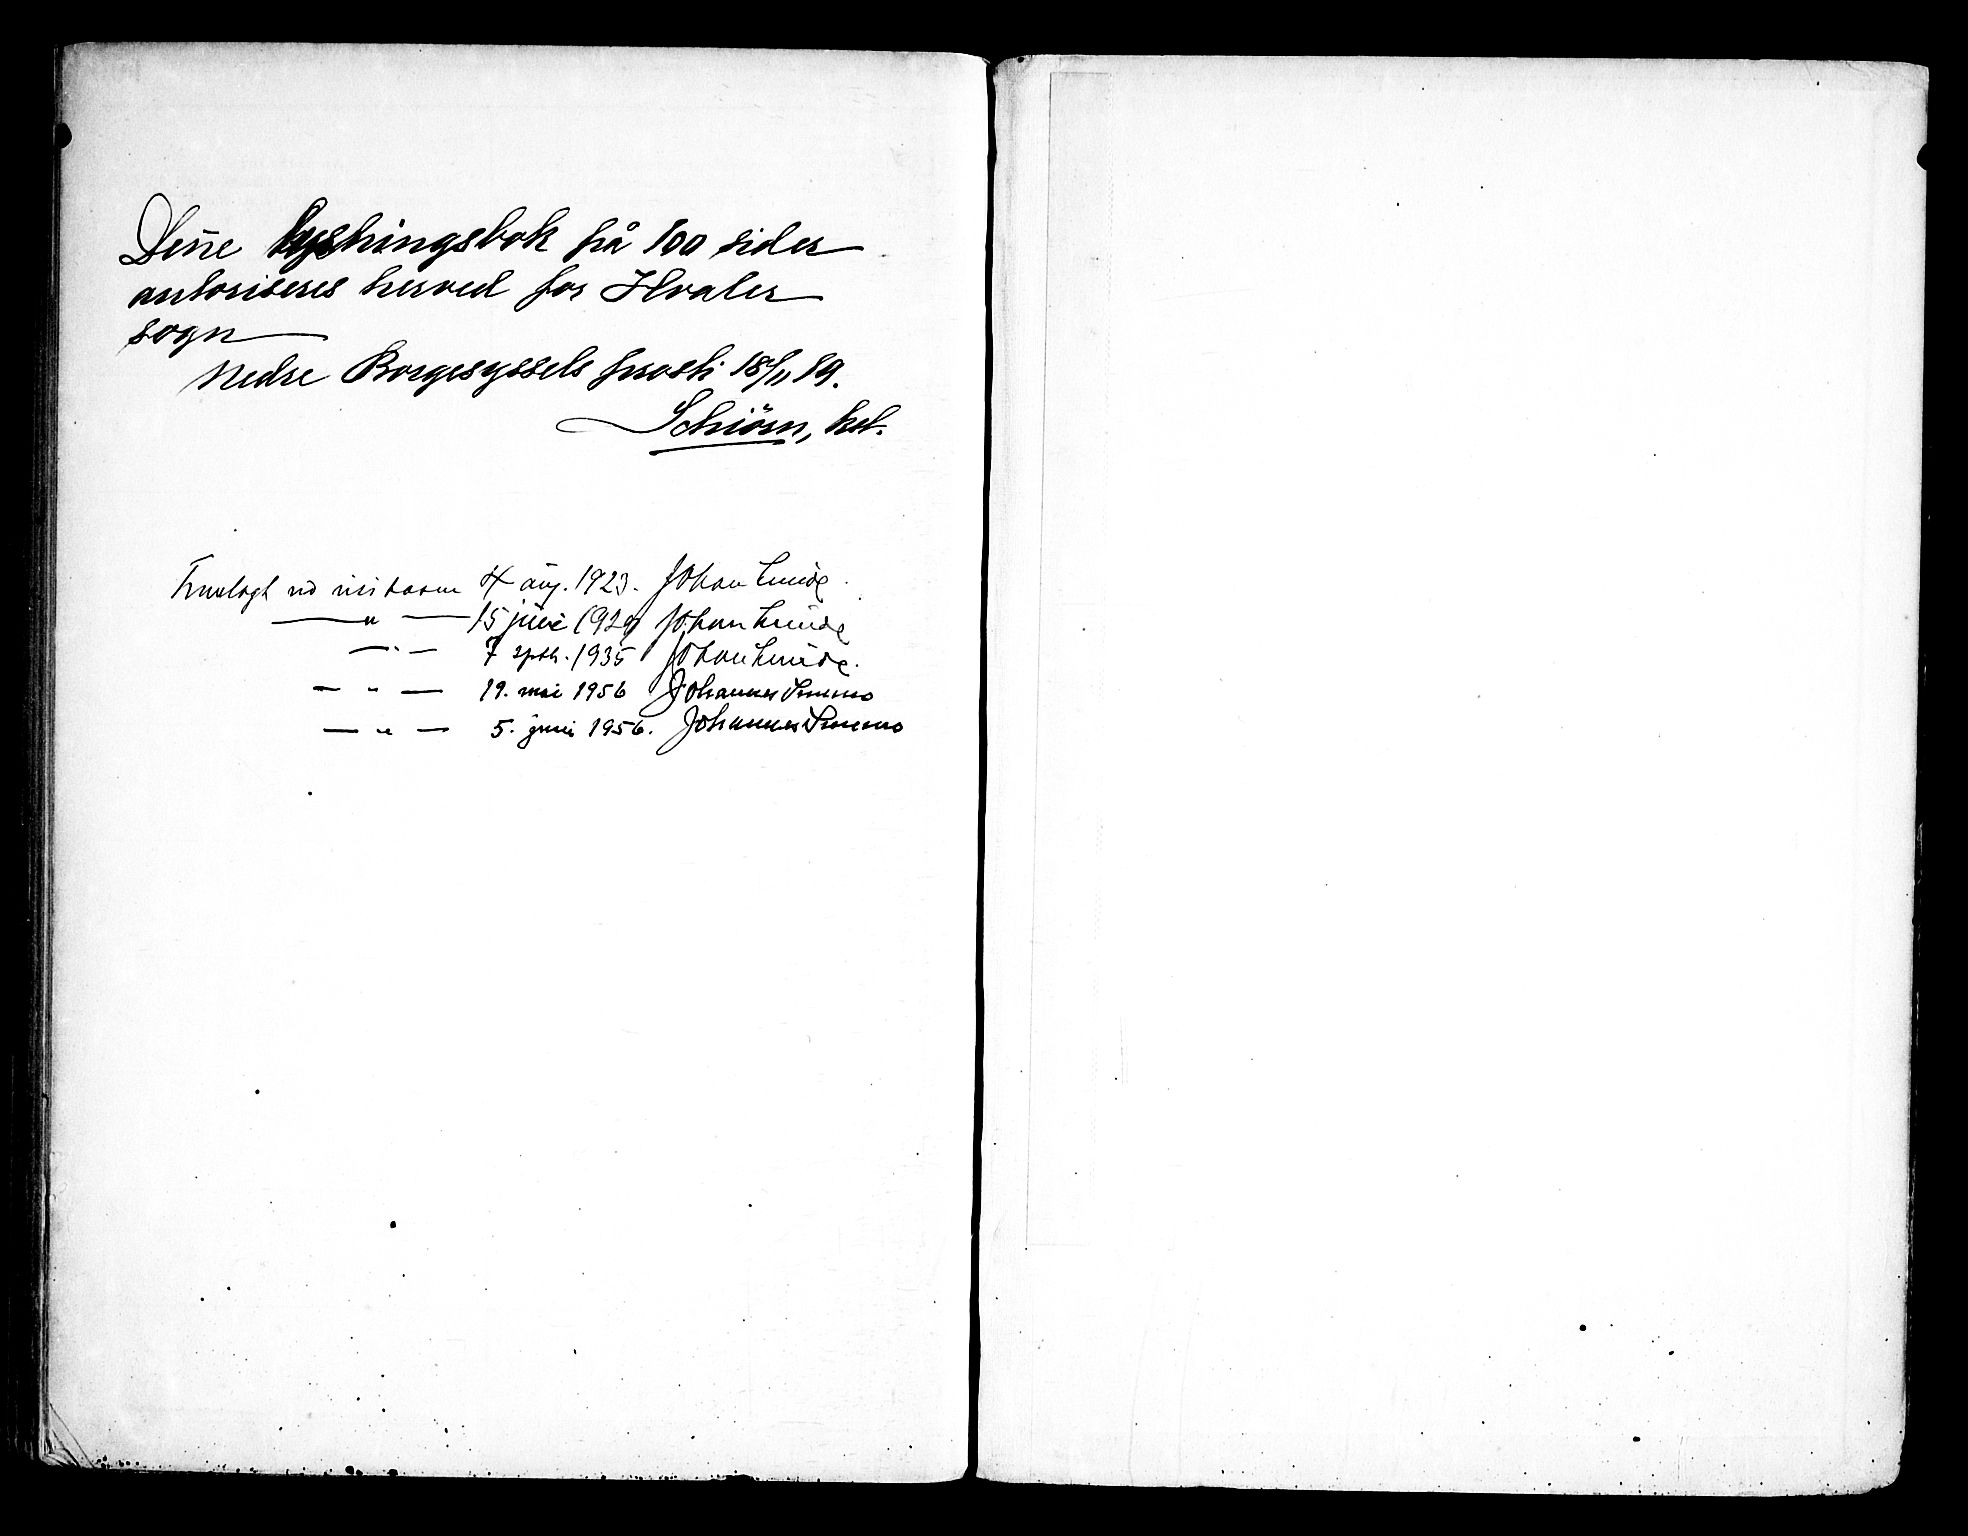 Denne lysningsbok på 100 sider
autoriseres herved for Hvaler
sogn
Nedre Borgesyssels prosti 18/11 19.
Schiörn, kst.
Fremlagt ved visitasen 4 aug. 1923. Johan Lunde
— " — 15 juni 1929 Johan Lunde
— " — 7 septb. 1935 Johan Lunde.
— " — 19. mai 1956 Johannes Smemo
— " — 5. juni 1956. Johannes Smemo